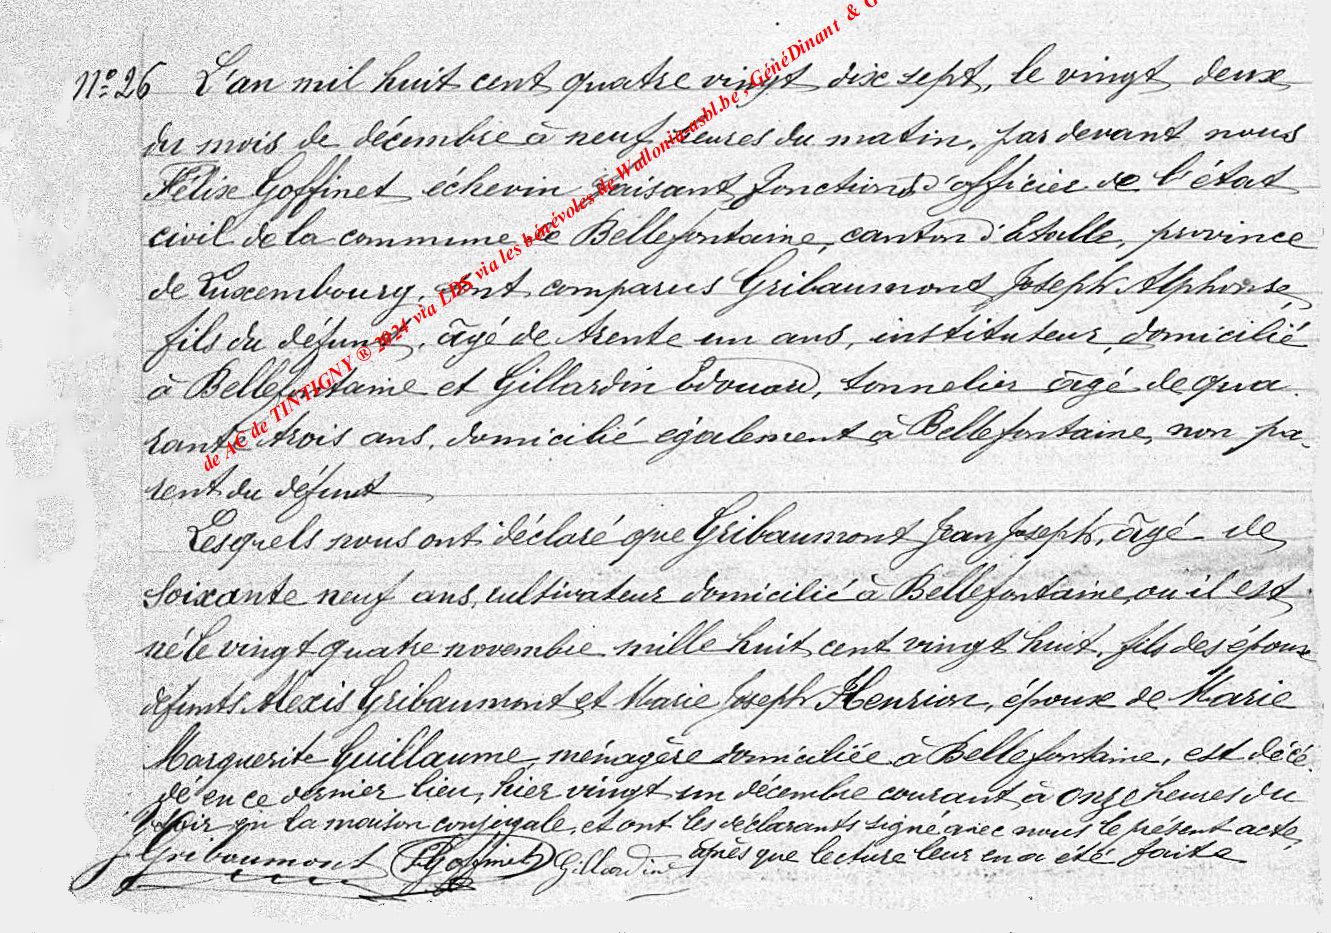 N° 26 L'an mil huit cent quatre vingt dix sept, le vingt deux
du mois de décembre à neuf heures du matin, par devant nous
Félix Goffinet échevin faisant fonctions d'officier de l'état
civil de la commune de Bellefontaine, canton d'Etalle, province
de Luxembourg, sont comparus Gribaumont Joseph Alphonse,
fils du défunt, âgé de trente un ans, instituteur, domicilié
à Bellefontaine et Gillardin Edouard, tonnelier âgé de qua
rante trois ans, domicilié également à Bellefontaine, non pa-
rent du défunt
Lesquels nous ont déclaré que Gribaumont Jean Joseph, âgé de
soixante neuf ans, cultivateur domicilié à Bellefontaine, où il est
né le vingt quatre novembre mille huit cent vingt huit, fils des époux
défunts Alexis Gribaumont et Marie Joseph Henrion, époux de Marie
Marguerite Guillaume, ménagère domiciliée à Bellefontaine, est décé
dé en ce dernier lieu, hier vingt un décembre courant à onze heures du
soir en la maison conjugale, et ont les déclarants signé avec nous le présent acte,
après que lecture leur en a été faite
Gribaumont F Goffinet Gillardin
de AC de TINTIGNY ® 2024 via LDS via les bénévoles de Wallonia-asbl.be, GénéDinant & G